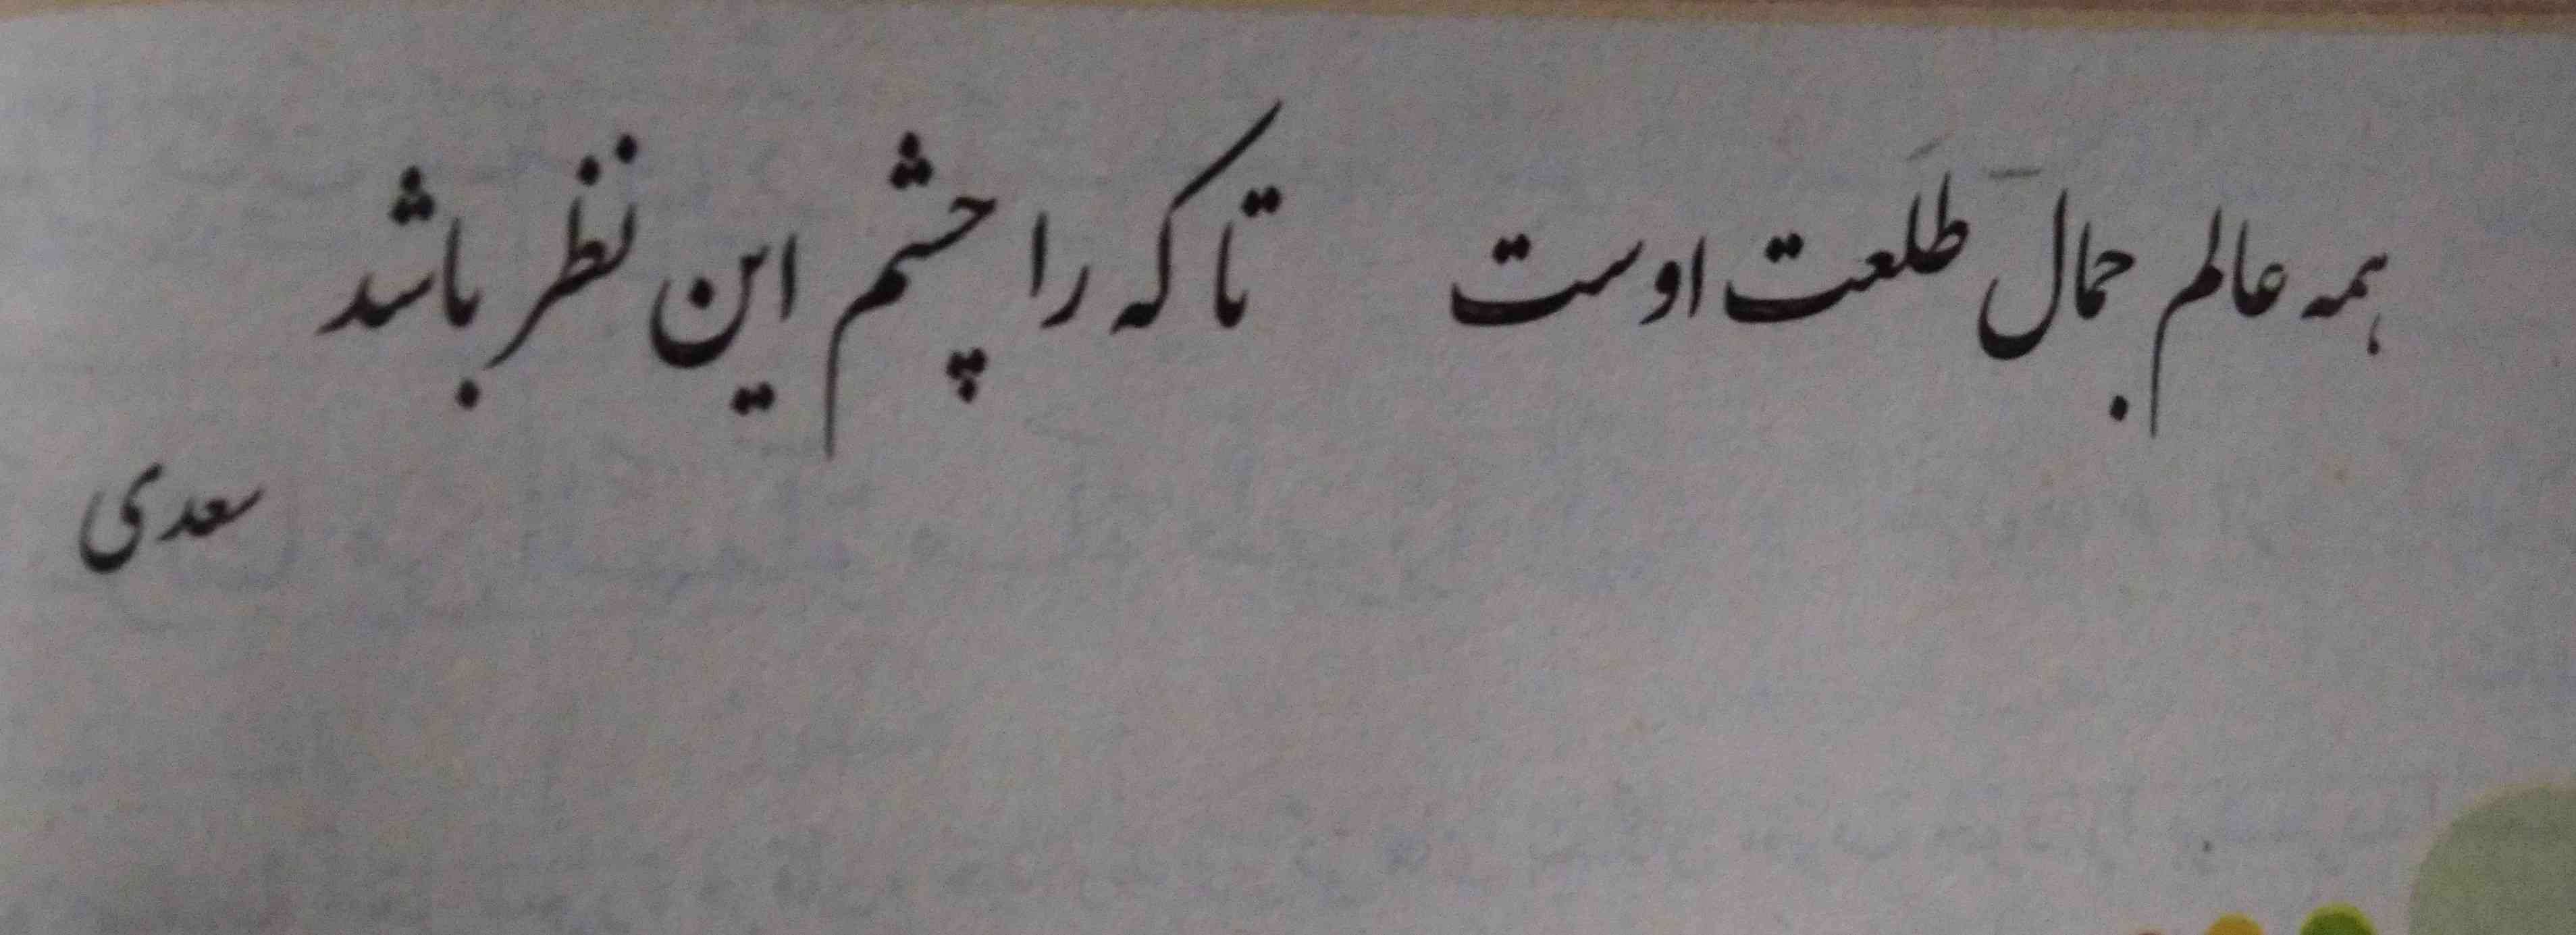 همه عالم جمال طَلعت اوست تا که را چشم این نظر باشد
سعدی